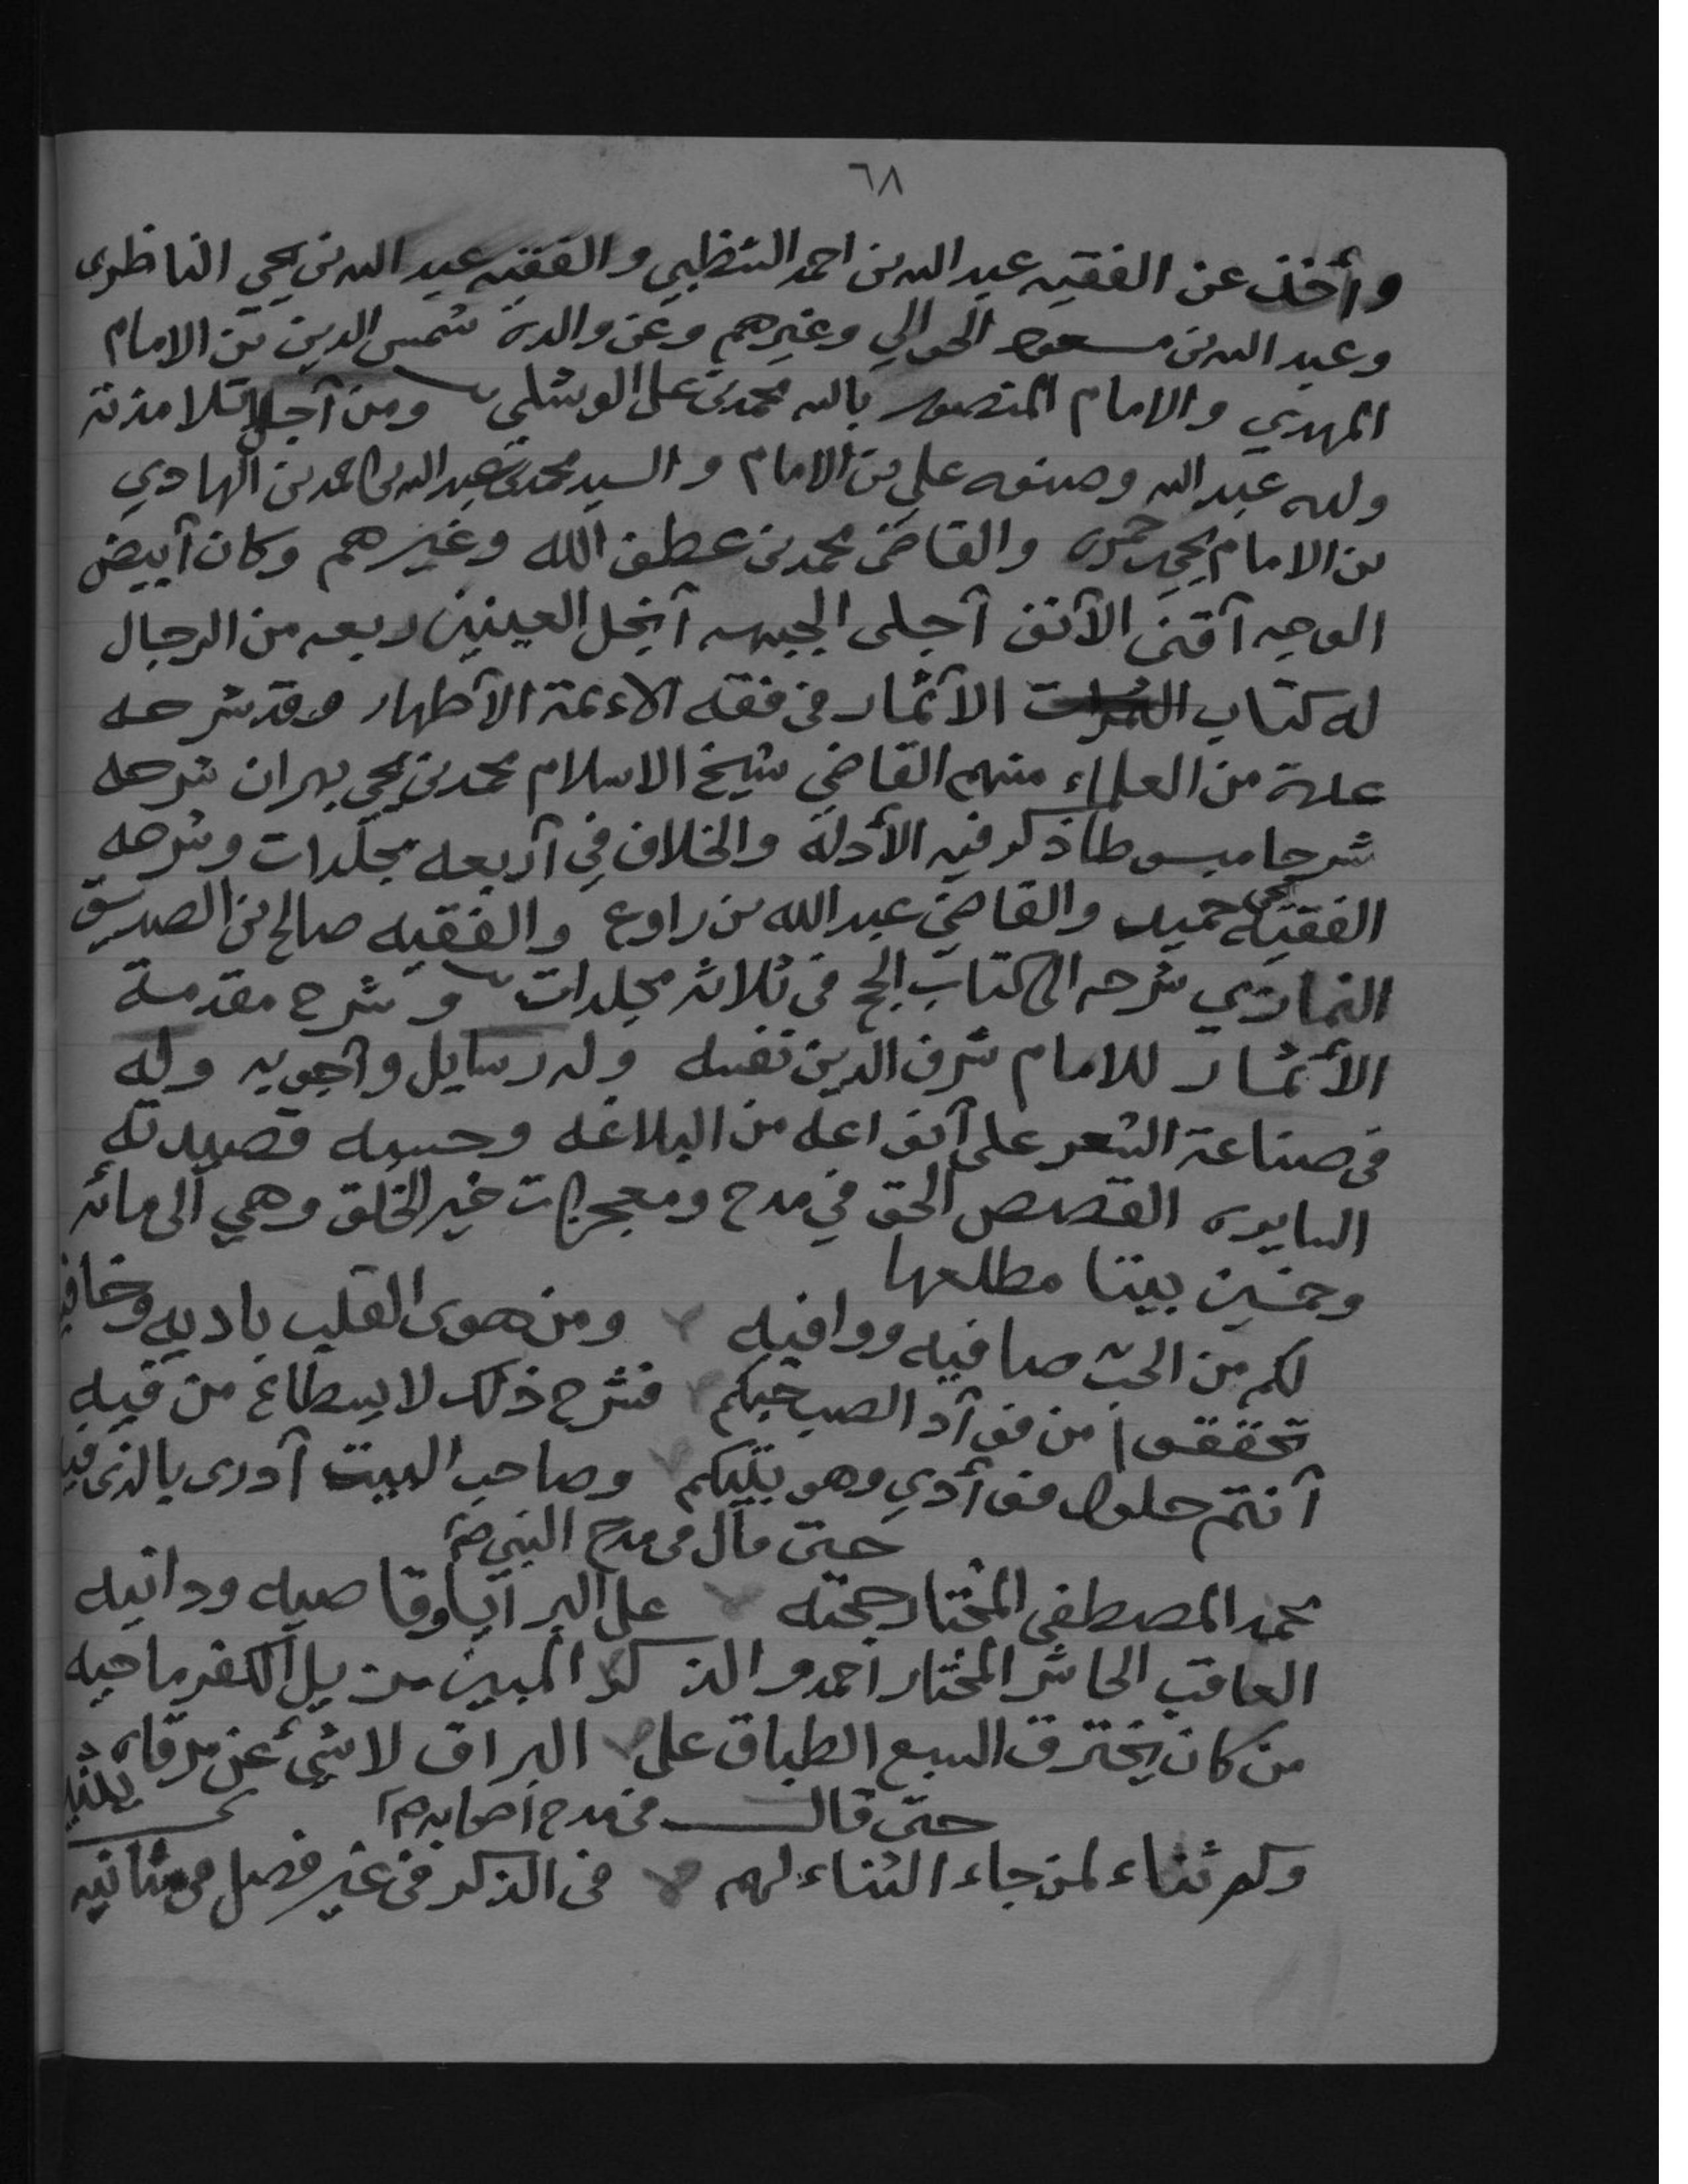 ٦٨
وأخذ عن الفقيه عبد الله بن احمد الشظبي والفقيه عبد الله بن يحي الناظري
وعبد الله بن مسعود الحوالي وغيرهم وعن والده شمس الدين بن الامام
المهدي والامام المنصور بالله محمد بن علي الوشلي ومن آجل تلامذته
ولده عبد الله وصنوه علي بن الامام والسيد محمد بن عبد الله بن احمد بن الهادي
بن الامام يحي حمزه والقاضي محمد بن عطف الله وغيرهم وكان آبيض
الوجه آقنى الآنف آجلى الجبهه آنجل العينين ربعه من الرجال
له كتاب الآثمار في فقه الاءئمة الآطهار وقد شرحه
عدة من العلماء منهم القاضي شيخ الاسلام محمد بن يحي بهران شرحه
شرحا مبسوطا ذكر فيه الأدلة والخلاف في آربعه مجلدات وشرحه
الفقيه يحي حميد والقاضي عبد الله بن راوع والفقيه صالح بن الصديق
النمازي شرحه الى كتاب الحج في ثلاثه مجلدات وشرح مقدمة
الأثمار للامام شرف الدين نفسه وله رسايل وآجوبه وله
في صناعة الشعر على آنواعه من البلاغه وحسبه قصيدته
السايره القصص الحق في مدح ومعجزات خير الخلق وهي الى مائه
وخمسين بيتا مطلعها
لكم من الحب صافيه ووافيه ومن هوى القلب باديه وخافيه
تحققوا من فوآد الصب حبكم فشرح ذلك لا يسطاع من فيه
آنتم حلول فوآدي وهو بيتكم وصاحب البيت آدرى بالذي فيه
حتى قال في مدح النبي ص
محمد المصطفى المختار حجته على البرايا وقاصيه ودانيه
العاقب الحاشر المختار احمد والذكر المبين مزيل الكفر ماحيه
من كان يخترق السبع الطباق على البراق لا شئ عن مرقاه
حتى قال في مدح اصحابه
وكم ثناء لمن جاء الثناء لهم في الذكر في غير فصل من مثانيه